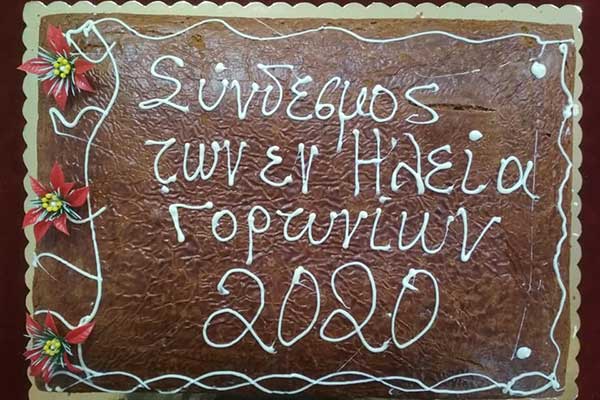 Σύνδεσμος
των εν Ηλεία
Γορτυνίων
2020